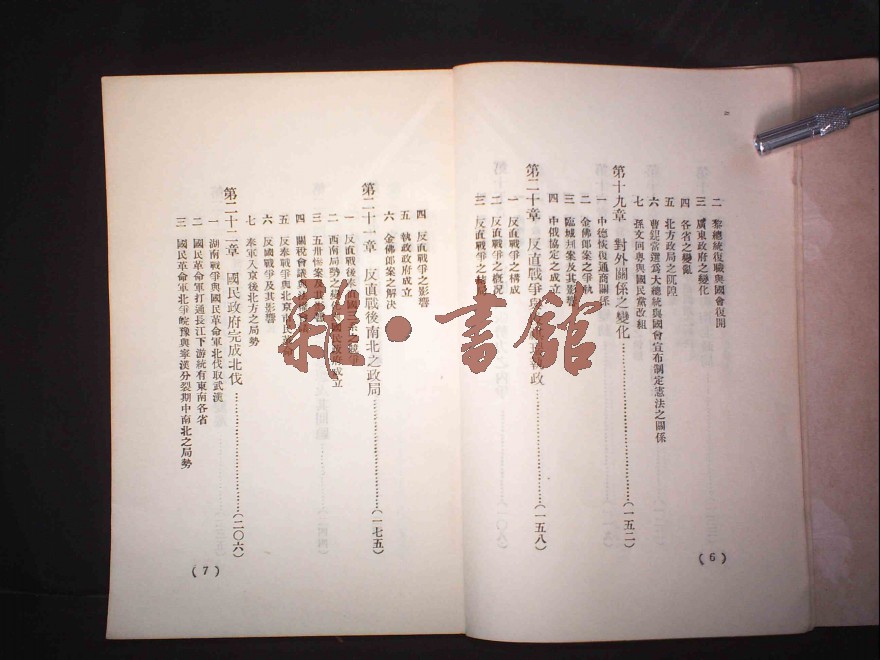 二 黎總統復職與國會復開
三 廣東政府之變化
四 各省之變亂
五 北方政局之
六 曹錕當選爲大總統與國會宣布制定憲法之關係
七 孫文回粵與國民黨改組
第十九章 對外關係之變化…………(一五二)
一 中德恢復通商關係
二 金佛郎案之爭執
三 臨城刦案及其影響
四 中俄協定之成立
第二十章 反直戰爭與 執政…………(一五八)
一 反直戰爭之構成
二 反直戰爭之概況
三 反直戰爭之
(6)
四 反直戰爭之影響
五 執政政府成立
六 金佛郎案之解決
第二十一章 反直戰後南北之政局…………(一七五)
一 反直戰後奉
二 西南局勢之變 國民政府成立
三 五卅慘案及其
四 關稅會議與
五 反奉戰爭與北京
六 反國戰爭及其影響
七 奉軍入京後北方之局勢
第二十二章 國民政府完成北伐…………(二〇六)
一 湖南戰爭與國民革命軍北伐取武漢
二 國民革命軍打通長江下游統有東南各省
三 國民革命軍北爭皖豫與寧漢分裂期中南北之局勢
(7)
雜·書館